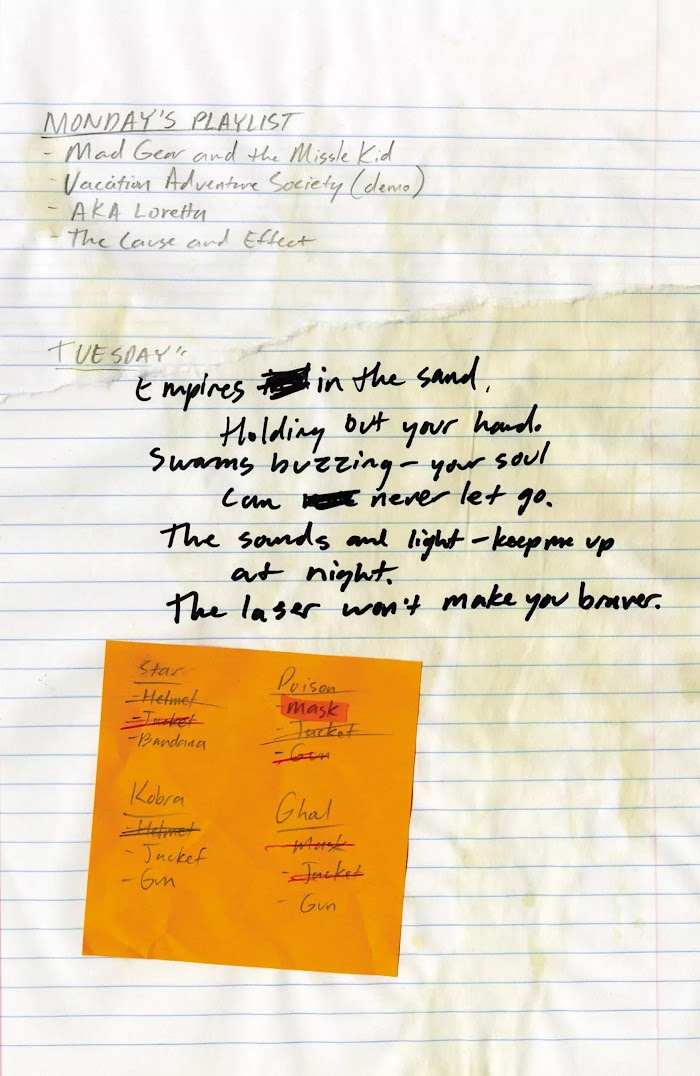 MONDAY'S PLAYLIST
- Mad Gear and the Missle Kid
- Vacation Adventure Society (demo)
- AKA Loretta
- The Cause and Effect
TUESDAY"
Empires in the sand,
Holding out your hand.
Swarms buzzing - your soul
can never let go.
The sounds and light - keep me up
at night.
The laser won't make you braver.
Star
- Helmet
- Jacket
- Bandana
Poison
- Mask
- Jacket
- Gun
Kobra
- Helmet
- Jacket
- Gun
Ghal
- Mask
- Jacket
- Gun